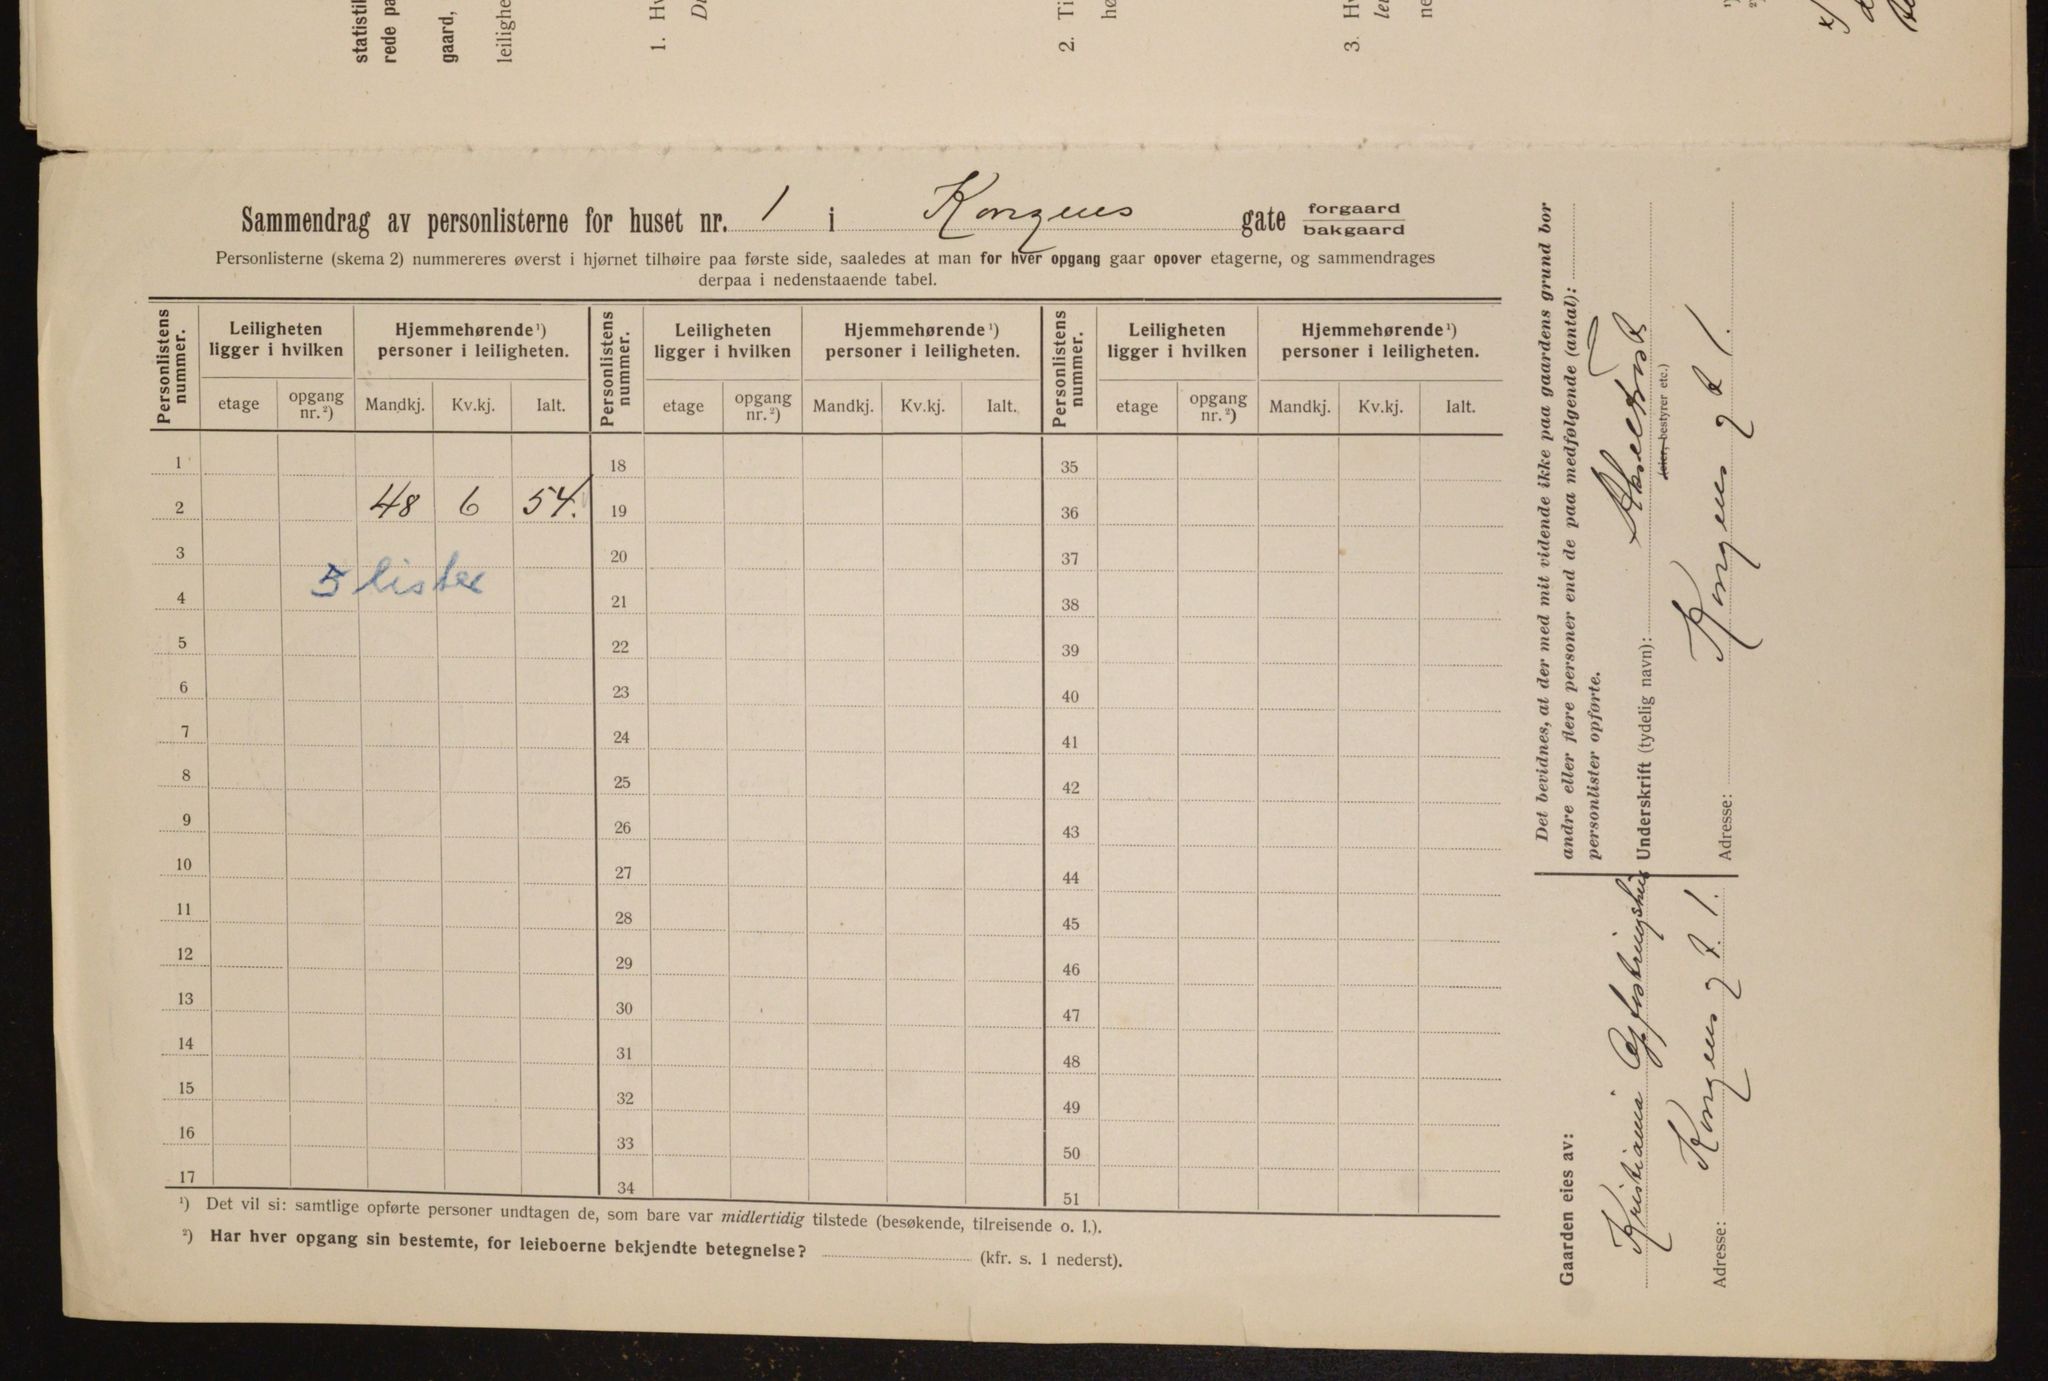 statistik
rede pa
gaard,
leilighe
1. Hv
2. Ti
hø
3. Hv
lei
ne
Sammendrag av personlisterne for huset nr. 1 i Kongens gate forgaard
bakgaard
Personlisterne (skema 2) nummereres øverst i hjørnet tilhøire paa første side, saaledes at man for hver opgang gaar opover etagerne, og sammendrages
derpaa i nedenstaaende tabel.
Personlistens nummer. Leiligheten ligger i hvilken Hjemmehørende ¹) personer i leiligheten. Personlistens nummer. Leiligheten ligger i hvilken Hjemmehørende ¹) personer i leiligheten. Personlistens nummer. Leiligheten ligger i hvilken Hjemmehørende ¹) personer i leiligheten.
etage opgang nr. ²) Mandkj. Kv.kj. Ialt. etage opgang nr. ²) Mandkj. Kv.kj. Ialt. etage opgang nr. ²) Mandkj. Kv.kj. Ialt.
1 18 35
2 48 6 54. 19 36
3 20 37
5 lister
4 21 38
5 22 39
6 23 40
7 24 41
8 25 42
9 26 43
10 27 44
11 28 45
12 29 46
13 30 47
14 31 48
15 32 49
16 33 50
17 34 51
¹) Det vil si: samtlige opførte personer undtagen de, som bare var midlertidig tilstede (besøkende, tilreisende o. l.).
²) Har hver opgang sin bestemte, for leieboerne bekjendte betegnelse? (kfr. s. 1 nederst).
Det bevidnes, at der med mit vidende ikke paa gaardens grund bor
andre eller flere personer end de paa medfølgende (antal):
personlister opførte.
Underskrift (tydelig navn):
(eier, bestyrer etc.)
Adresse: Kongens g t 1.
Gaarden eies av:
Kristiania Opfostringshus
Adresse: Kongens g t. 1.